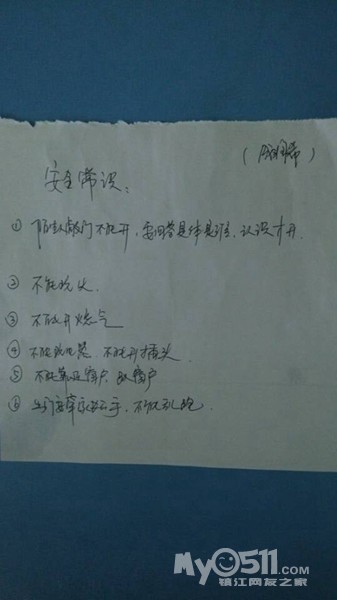 安全常识:
① 陌生人敲门不能开,要问答是谁是谁,认识才开.
② 不能玩火.
③ 不能开燃气
④ 不能玩电器,不能开插头
⑤ 不能靠近窗户,趴窗户
⑥ 出门要牵家长手,不能乱跑.
My0511.com
镇江网友之家